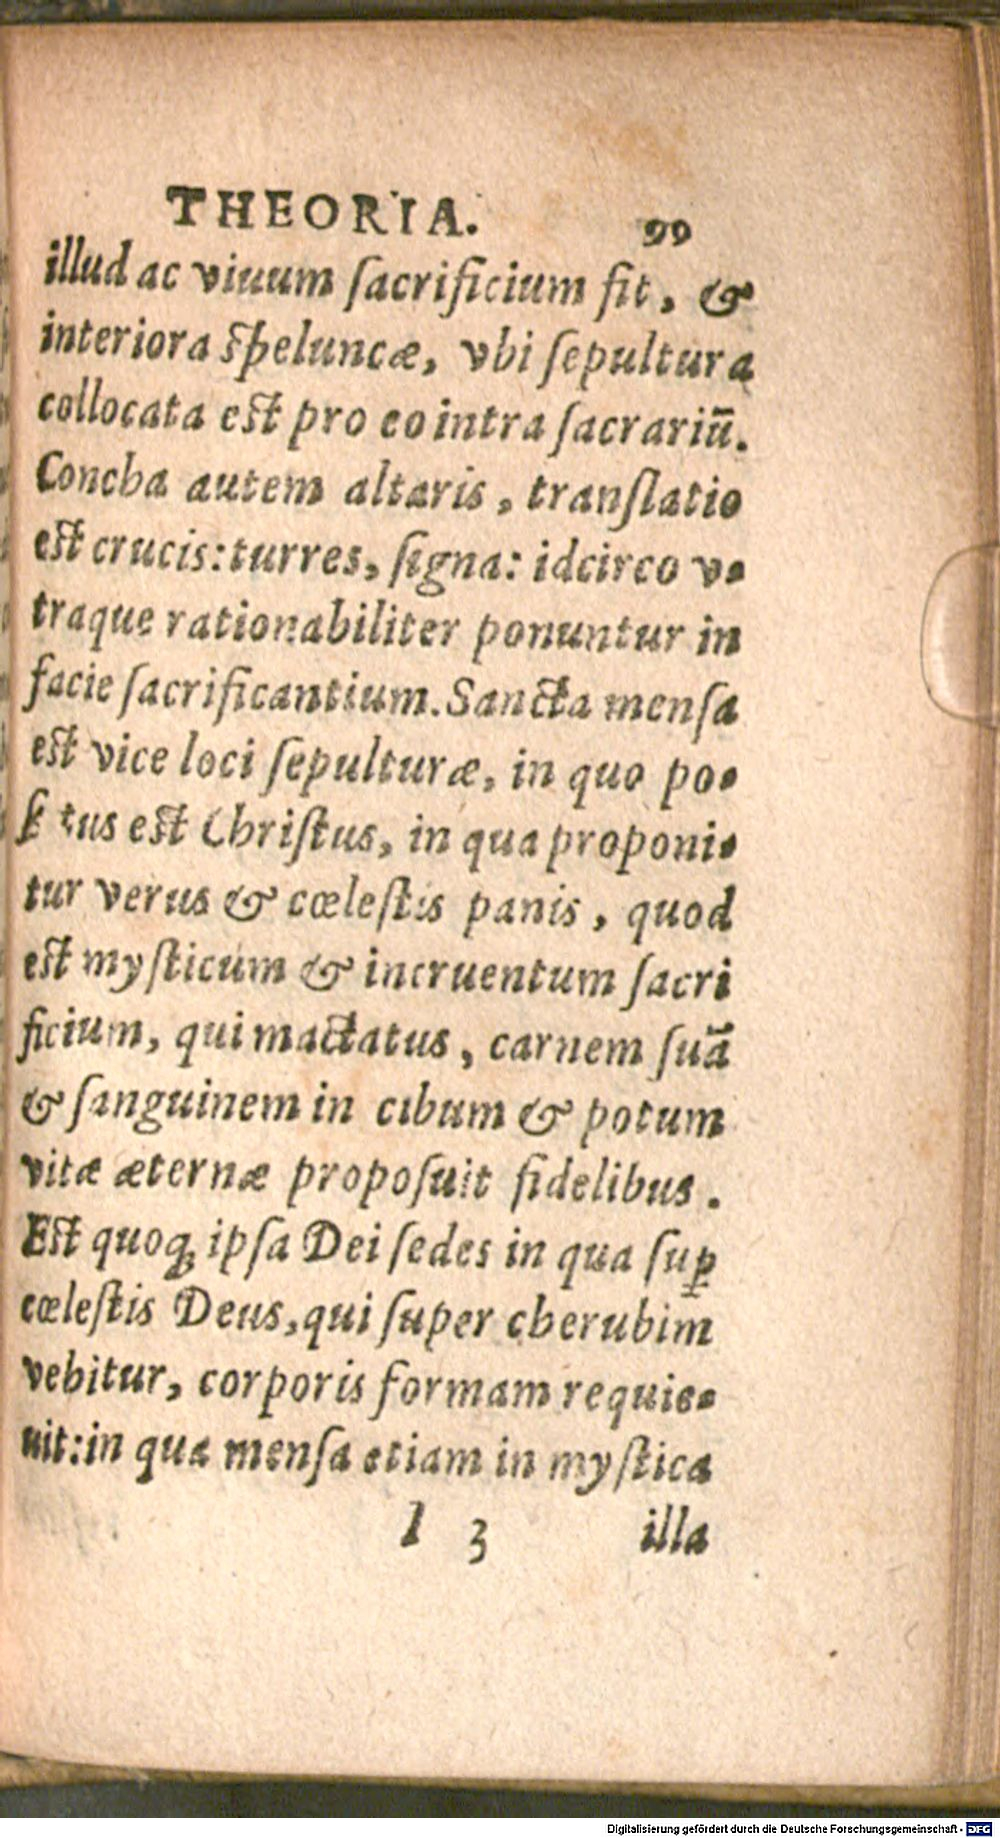 THEORIA. 99
illud ac viuum ſacrificium fit, &
interiora ſpeluncæ, vbi ſepultura
collocata eſt pro eo intra ſacrariū.
Concha autem altaris, tranſlatio
eſt crucis: turres, ſigna: idcirco v-
traque rationabiliter ponuntur in
facie ſacrificantium. Sancta menſa
eſt vice loci ſepulturæ, in quo po-
ſitus eſt Chriſtus, in qua proponi-
tur verus & cœleſtis panis, quod
eſt myſticum & incruentum ſacri
ficium, qui mactatus, carnem ſuā
& ſanguinem in cibum & potum
vitæ æternæ propoſuit fidelibus.
Eſt quoq; ipſa Dei ſedes in qua ſuꝑ
cœleſtis Deus, qui ſuper cherubim
vehitur, corporis formam requie-
uit: in qua menſa etiam in myſtica
I 3 illa
Digitalisierung gefördert durch die Deutsche Forschungsgemeinschaft - DFG